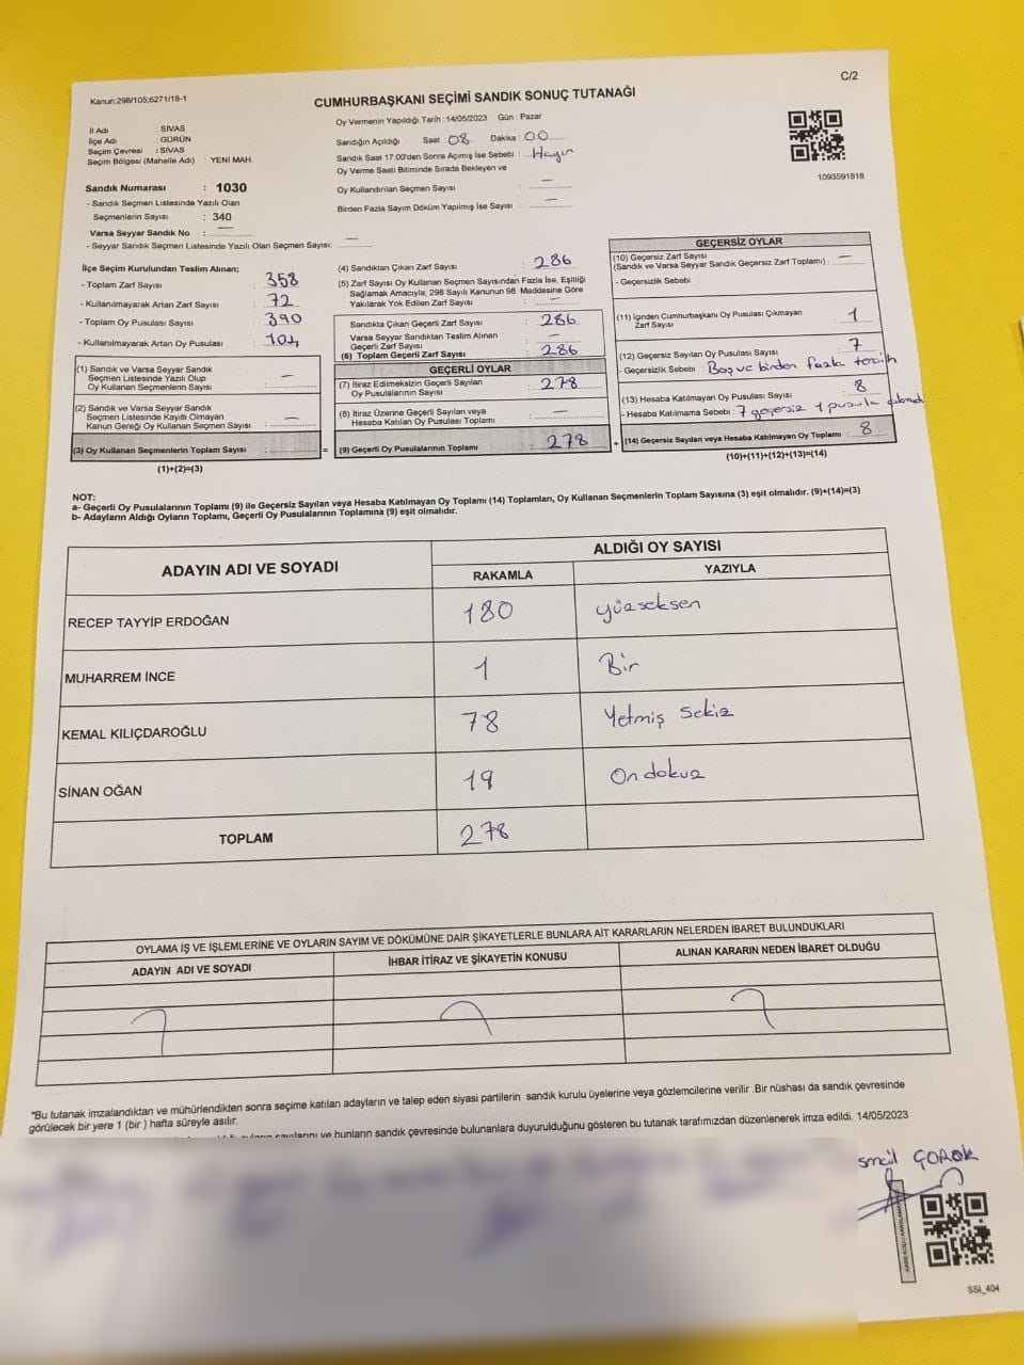 Kanun:298/105;6271/18-1
C/2
CUMHURBAŞKANI SEÇİMİ SANDIK SONUÇ TUTANAĞI
Oy Vermenin Yapıldığı Tarih : 14/05/2023 Gün : Pazar
İl Adı : SİVAS
İlçe Adı : GÜRÜN
Seçim Çevresi : SİVAS
Seçim Bölgesi (Mahalle Adı) : YENİ MAH.
Sandığın Açıldığı Saat : 08 Dakika : 00
Sandık Saat 17.00'den Sonra Açılmış İse Sebebi : Hayır
Oy Verme Saati Bitiminde Sırada Bekleyen ve
Oy Kullandırılan Seçmen Sayısı : —
Birden Fazla Sayım Döküm Yapılmış İse Sayısı : —
1093591818
Sandık Numarası : 1030
- Sandık Seçmen Listesinde Yazılı Olan
Seçmenlerin Sayısı : 340
Varsa Seyyar Sandık No : —
- Seyyar Sandık Seçmen Listesinde Yazılı Olan Seçmen Sayısı: —
İlçe Seçim Kurulundan Teslim Alınan;
- Toplam Zarf Sayısı : 358
- Kullanılmayarak Artan Zarf Sayısı : 72
- Toplam Oy Pusulası Sayısı : 390
- Kullanılmayarak Artan Oy Pusulası : 104
(1) Sandık ve Varsa Seyyar Sandık
Seçmen Listesinde Yazılı Olup
Oy Kullanan Seçmenlerin Sayısı : —
(2) Sandık ve Varsa Seyyar Sandık
Seçmen Listesinde Kayıtlı Olmayan
Kanun Gereği Oy Kullanan Seçmen Sayısı : —
(3) Oy Kullanan Seçmenlerin Toplam Sayısı :
(1)+(2)=(3)
(4) Sandıktan Çıkan Zarf Sayısı : 286
(5) Zarf Sayısı Oy Kullanan Seçmen Sayısından Fazla İse, Eşitliği
Sağlamak Amacıyla, 298 Sayılı Kanunun 98. Maddesine Göre
Yakılarak Yok Edilen Zarf Sayısı : —
Sandıkta Çıkan Geçerli Zarf Sayısı : 286
Varsa Seyyar Sandıktan Teslim Alınan
Geçerli Zarf Sayısı : —
(6) Toplam Geçerli Zarf Sayısı : 286
GEÇERLİ OYLAR
(7) İtiraz Edilmeksizin Geçerli Sayılan
Oy Pusulalarının Sayısı : 278
(8) İtiraz Üzerine Geçerli Sayılan veya
Hesaba Katılan Oy Pusulası Toplamı : —
= (9) Geçerli Oy Pusulalarının Toplamı : 278 +
GEÇERSİZ OYLAR
(10) Geçersiz Zarf Sayısı
(Sandık ve Varsa Seyyar Sandık Geçersiz Zarf Toplamı) : —
- Geçersizlik Sebebi
(11) İçinden Cumhurbaşkanı Oy Pusulası Çıkmayan
Zarf Sayısı : 1
(12) Geçersiz Sayılan Oy Pusulası Sayısı : 7
- Geçersizlik Sebebi : Boş ve birden fazla tercih
(13) Hesaba Katılmayan Oy Pusulası Sayısı : 8
- Hesaba Katılmama Sebebi : 7 geçersiz 1 pusula
(14) Geçersiz Sayılan veya Hesaba Katılmayan Oy Toplamı : 8
(10)+(11)+(12)+(13)=(14)
NOT:
a- Geçerli Oy Pusulalarının Toplamı (9) ile Geçersiz Sayılan veya Hesaba Katılmayan Oy Toplamı (14) Toplamları, Oy Kullanan Seçmenlerin Toplam Sayısına (3) eşit olmalıdır. (9)+(14)=(3)
b- Adayların Aldığı Oyların Toplamı, Geçerli Oy Pusulalarının Toplamına (9) eşit olmalıdır.
ADAYIN ADI VE SOYADI
ALDIĞI OY SAYISI
RAKAMLA YAZIYLA
RECEP TAYYİP ERDOĞAN 180 yüzseksen
MUHARREM İNCE 1 Bir
KEMAL KILIÇDAROĞLU 78 Yetmiş sekiz
SİNAN OĞAN 19 On dokuz
TOPLAM 278
OYLAMA İŞ VE İŞLEMLERİNE VE OYLARIN SAYIM VE DÖKÜMÜNE DAİR ŞİKAYETLERLE BUNLARA AİT KARARLARIN NELERDEN İBARET BULUNDUKLARI
ADAYIN ADI VE SOYADI İHBAR İTİRAZ VE ŞİKAYETİN KONUSU ALINAN KARARIN NEDEN İBARET OLDUĞU
"Bu tutanak imzalandıktan ve mühürlendikten sonra seçime katılan adayların ve talep eden siyasi partilerin sandık kurulu üyelerine veya gözlemcilerine verilir .Bir nüshası da sandık çevresinde
görülecek bir yere 1 (bir ) hafta süreyle asılır.
ve bunların sandık çevresinde bulunanlara duyurulduğunu gösteren bu tutanak tarafımızdan düzenlenerek imza edildi. 14/05/2023
smail ÇORAK
SSI_404